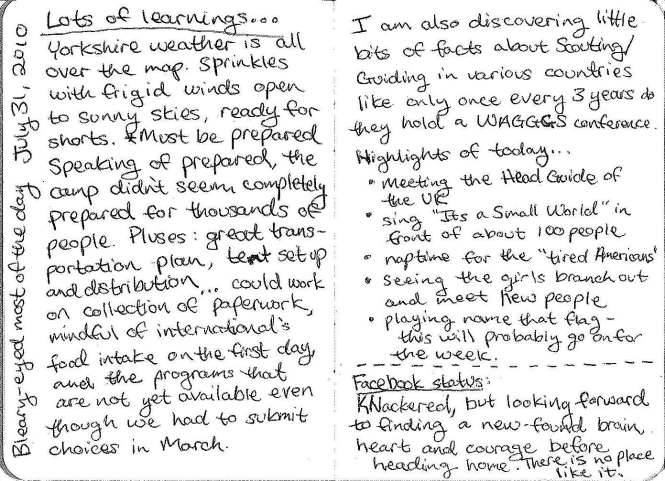 Bleary-eyed most of the day July 31, 2010
Lots of learnings...
Yorkshire weather is all
over the map. Sprinkles
with frigid winds open
to sunny skies, ready for
shorts. *Must be prepared
Speaking of prepared, the
camp didn't seem completely
prepared for thousands of
people. Pluses: great trans-
portation plan, tent set up
and distribution,.. could work
on collection of paperwork,
mindful of international's
food intake on the first day,
and the programs that
are not yet available even
though we had to submit
choices in March.
I am also discovering little
bits of facts about Scouting/
Guiding in various countries
like only once every 3 years do
they hold a WAGGGS conference.
Highlights of today...
• meeting the Head Guide of
the UK
• sing "Its a Small World" in
front of about 100 people
• naptime for the "tired Americans"
• seeing the girls branch out
and meet new people
• playing name that flag -
this will probably go on for
the week.
Facebook status:
KNackered, but looking forward
to finding a new-found brain,
heart and courage before
heading home. There is no place
like it.